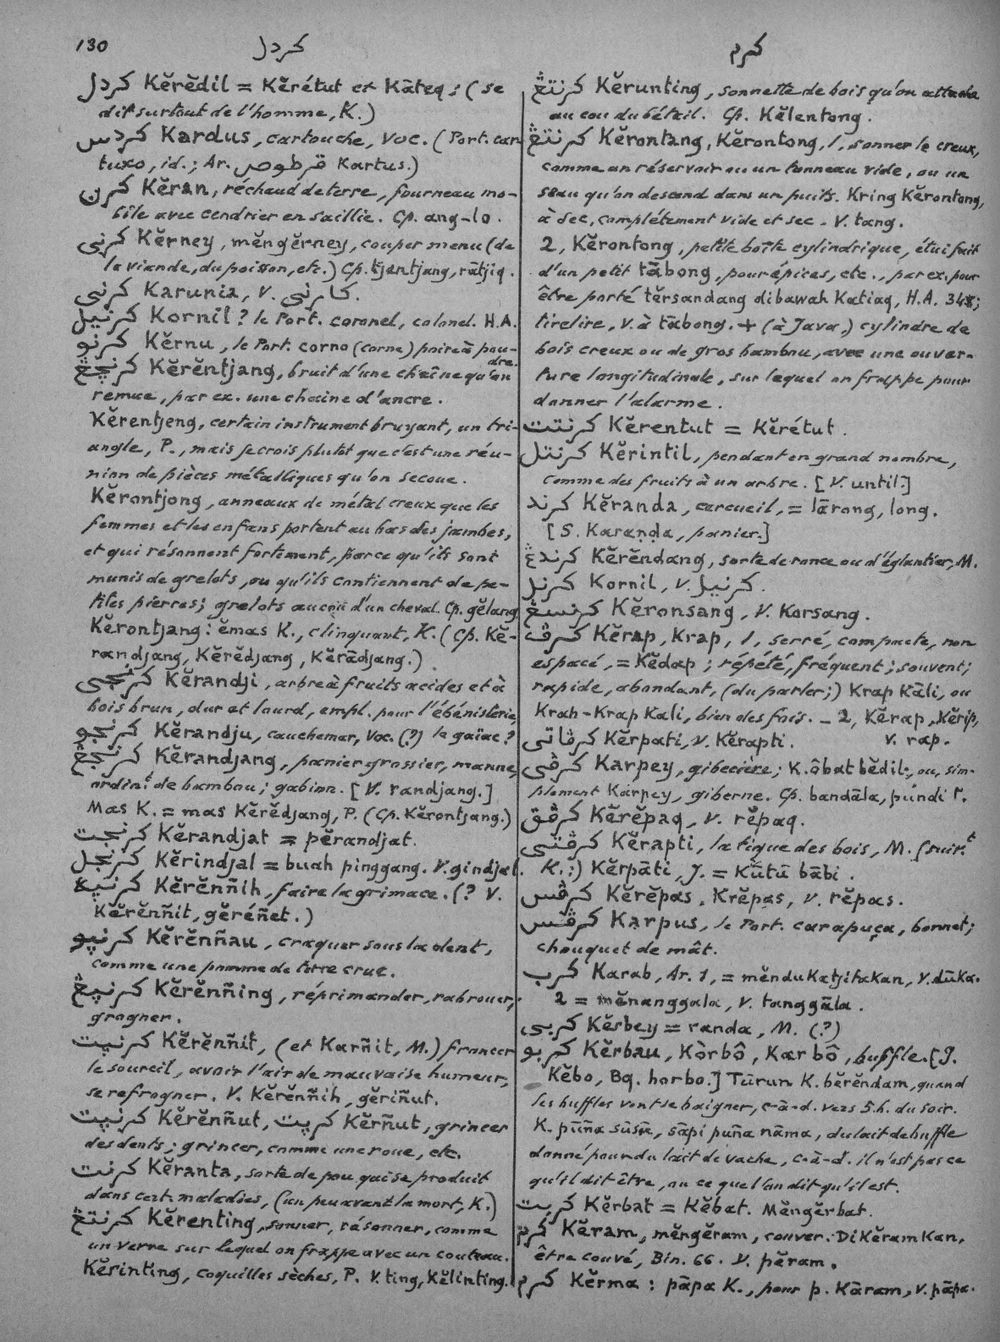 130
كردل
كرم
كردل Kĕrĕdil = Kĕrétut et Kāteq; (se
dit surtout de l'homme, K.)
كردس Kardus, cartouche, Voc. (Port. car
tuxo, id.; Ar. قرطوص Kartus.)
كرن Kĕran, réchaud de terre, fourneau mo-
bile avec cendrier en saillie. Cp. ang-lo.
كرني Kĕrney, mĕngĕrney, couper menu (de
la viande, du poisson, etc.) Cp. tjantjang, rātjiq.
كرني Karunia, V. كارني.
كرنيل Kornil? le Port. coronel, colonel. H.A.
كرنو Kĕrnu, le Port. corno (corne) poire à pou-
dre.
كرنچڠ Kĕrĕntjang, bruit d'une chaîne qu'on
remue, par ex. une chaîne d'ancre.
Kĕrentjeng, certain instrument bruyant, un tri-
angle, P., mais je crois plutôt que c'est une réu-
nion de pièces métalliques qu'on secoue.
Kĕrontjong, anneaux de métal creux que les
femmes et les enfans portent au bas des jambes,
et qui résonnent fortement, parce qu'ils sont
munis de grelots, ou qu'ils contiennent de pe-
tites pierres; grelots au cou d'un cheval. Cp. gĕlang
Kĕrontjang: ĕmas K., clinquant, K. (Cp. Kĕ-
randjang, Kĕrĕdjang, Kĕrādjang.)
كرنجي Kĕrandji, arbre à fruits acides et à
bois brun, dur et lourd, empl. pour l'ébénisterie,
كرنجو Kĕrandju, cauchemar, Voc. (?) le gaïac?
كرنجڠ Kĕrandjang, panier grossier, manne,
ordin.t de bambou; gabion. [V. randjang.]
Mas K. = mas Kĕrĕdjang, P. (Cp. Kĕrontjang.)
كرنجت Kĕrandjat = pĕrandjat.
كرنجل Kĕrindjal = buah pinggang. V. gindjal.
كرنيه Kĕrĕnñih, faire la grimace. (? V.
Kĕrĕnñit, gĕréñet.)
كرنيو Kĕrĕnñau, craquer sous la dent,
comme une pomme de terre crue.
كرنيڠ Kĕrĕnñing, réprimander, rabrouer,
grogner.
كرنيت Kĕrĕnñit, (et Karñit, M.) froncer
le sourcil, avoir l'air de mauvaise humeur,
se refrogner. V. Kĕrĕnñih, gĕriñut.
كرنيت Kĕrĕnñut, كريت Kĕrñut, grincer
des dents; grincer, comme une roue, etc.
كرنت Kĕranta, sorte de pou qui se produit
dans cert. maladies, (un peu avant la mort, K.)
كرنتڠ Kĕrenting, sonner, résonner, comme
un verre sur lequel on frappe avec un couteau.
Kĕrinting, coquilles sèches, P. V. ting, Kĕlinting.
كرنتڠ Kĕrunting, sonnette de bois qu'on attache
au cou du bétail. Cp. Kĕlentong.
كرنتڠ Kĕrontang, Kĕrontong, 1, sonner le creux,
comme un réservoir ou un tonneau vide, ou un
seau qu'on descend dans un puits. Kring Kĕrontang,
à sec, complétement vide et sec. V. tang.
2, Kĕrontong, petite boîte cylindrique, étui fait
d'un petit tābong, pour épices, etc., par ex. pour
être porté tĕrsandang dibawah Katiaq, H.A. 348;
tirelire, V. à tābong. + (à Java,) cylindre de
bois creux ou de gros bambou, avec une ouver-
ture longitudinale, sur lequel on frappe pour
donner l'alarme.
كرنتت Kĕrentut = Kĕrétut.
كرنتل Kĕrintil, pendant en grand nombre,
comme des fruits à un arbre. [V. until.]
كرند Kĕranda, cercueil, = lārong, long.
[S. Karaṇḍa, panier.]
كرندڠ Kĕrĕndang, sorte de ronce ou d'églantier, M.
كرنل Kornil, V. كرنيل.
كرنسڠ Kĕronsang, V. Korsang.
كرڤ Kĕrap, Krap, 1, serré, compacte, non
espacé, = Kĕdap; répété, fréquent; souvent;
rapide, abondant, (du parler;) Krap Kāli, ou
Krah-Krap Kali, bien des fois. _ 2, Kĕrap, Kĕrip,
V. rap.
كرڤاتي Kĕrpati, V. Kĕrapti.
كرڤي Karpey, gibecière; K. ôbat bĕdil, ou, sim-
plement Karpey, giberne. Cp. bandāla, pundi².
كرڤق Kĕrĕpaq, V. rĕpaq.
كرڤتي Kĕrapti, la tique des bois, M. (suiv.t
K.:) Kĕrpāti, J. = Kūtū bābi.
كرڤس Kĕrĕpas, Krĕpas, V. rĕpas.
كرڤس Karpus, le Port. carapuça, bonnet;
chouquet de mât.
كرب Karab, Ar. 1, = mĕndu Katjitakan, V. dūka.
2 = mĕnanggala, V. tanggāla.
كربي Kĕrbey = randa, M. (?)
كربو Kĕrbau, Kòrbô, Karbô, buffle. [J.
Kĕbo, Bq. horbo.] Tūrun K. bĕrĕndam, quand
les buffles vont se baigner, c-à-d. vers 5 h. du soir.
K. pūña sūsū, sāpi puña nāma, du lait de buffle
donné pour du lait de vache, c-à-d. il n'est pas ce
qu'il dit être, ou ce que l'on dit qu'il est.
كربت Kĕrbat = Kĕbat. Mĕngĕrbat.
كرم Kĕram, mĕngĕram, couver. DiKĕramKan,
être couvé, Bin. 66. V. pĕram.
كرم Kĕrma: pāpa K., pour p. Kāram, V. pāpa.